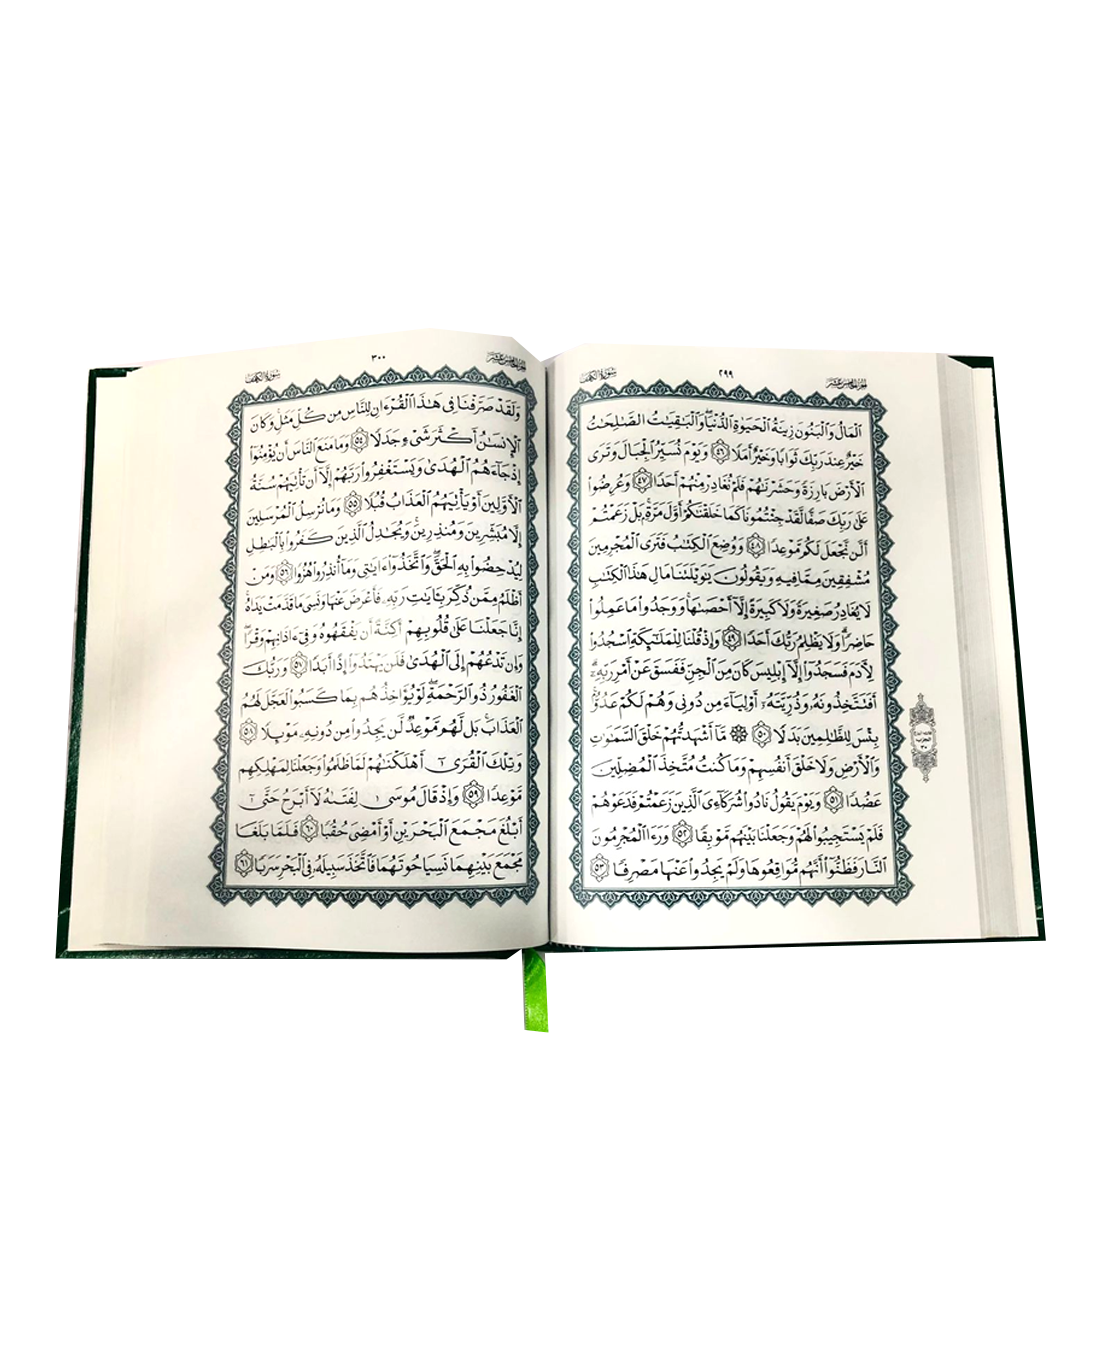 الجزء الخامس عشر
٢٩٩
سورة الكهف
ٱلْمَالُ وَٱلْبَنُونَ زِينَةُ ٱلْحَيَوٰةِ ٱلدُّنْيَا ۖ وَٱلْبَٰقِيَٰتُ ٱلصَّٰلِحَٰتُ
خَيْرٌ عِندَ رَبِّكَ ثَوَابًا وَخَيْرٌ أَمَلًا ٤٦ وَيَوْمَ نُسَيِّرُ ٱلْجِبَالَ وَتَرَى
ٱلْأَرْضَ بَارِزَةً وَحَشَرْنَٰهُمْ فَلَمْ نُغَادِرْ مِنْهُمْ أَحَدًا ٤٧ وَعُرِضُوا۟
عَلَىٰ رَبِّكَ صَفًّا لَّقَدْ جِئْتُمُونَا كَمَا خَلَقْنَٰكُمْ أَوَّلَ مَرَّةٍۭ ۚ بَلْ زَعَمْتُمْ
أَلَّن نَّجْعَلَ لَكُم مَّوْعِدًا ٤٨ وَوُضِعَ ٱلْكِتَٰبُ فَتَرَى ٱلْمُجْرِمِينَ
مُشْفِقِينَ مِمَّا فِيهِ وَيَقُولُونَ يَٰوَيْلَتَنَا مَالِ هَٰذَا ٱلْكِتَٰبِ
لَا يُغَادِرُ صَغِيرَةً وَلَا كَبِيرَةً إِلَّآ أَحْصَىٰهَا ۚ وَوَجَدُوا۟ مَا عَمِلُوا۟
حَاضِرًا ۗ وَلَا يَظْلِمُ رَبُّكَ أَحَدًا ٤٩ وَإِذْ قُلْنَا لِلْمَلَٰٓئِكَةِ ٱسْجُدُوا۟
لِءَادَمَ فَسَجَدُوٓا۟ إِلَّآ إِبْلِيسَ كَانَ مِنَ ٱلْجِنِّ فَفَسَقَ عَنْ أَمْرِ رَبِّهِۦٓ ۗ
أَفَتَتَّخِذُونَهُۥ وَذُرِّيَّتَهُۥٓ أَوْلِيَآءَ مِن دُونِى وَهُمْ لَكُمْ عَدُوٌّۢ ۚ
بِئْسَ لِلظَّٰلِمِينَ بَدَلًا ٥٠ ۞ مَّآ أَشْهَدتُّهُمْ خَلْقَ ٱلسَّمَٰوَٰتِ
وَٱلْأَرْضِ وَلَا خَلْقَ أَنفُسِهِمْ وَمَا كُنتُ مُتَّخِذَ ٱلْمُضِلِّينَ
عَضُدًا ٥١ وَيَوْمَ يَقُولُ نَادُوا۟ شُرَكَآءِىَ ٱلَّذِينَ زَعَمْتُمْ فَدَعَوْهُمْ
فَلَمْ يَسْتَجِيبُوا۟ لَهُمْ وَجَعَلْنَا بَيْنَهُم مَّوْبِقًا ٥٢ وَرَءَا ٱلْمُجْرِمُونَ
ٱلنَّارَ فَظَنُّوٓا۟ أَنَّهُم مُّوَاقِعُوهَا وَلَمْ يَجِدُوا۟ عَنْهَا مَصْرِفًا ٥٣
الجزء الخامس عشر
٣٠٠
سورة الكهف
وَلَقَدْ صَرَّفْنَا فِى هَٰذَا ٱلْقُرْءَانِ لِلنَّاسِ مِن كُلِّ مَثَلٍ ۚ وَكَانَ
ٱلْإِنسَٰنُ أَكْثَرَ شَىْءٍ جَدَلًا ٥٤ وَمَا مَنَعَ ٱلنَّاسَ أَن يُؤْمِنُوٓا۟
إِذْ جَآءَهُمُ ٱلْهُدَىٰ وَيَسْتَغْفِرُوا۟ رَبَّهُمْ إِلَّآ أَن تَأْتِيَهُمْ سُنَّةُ
ٱلْأَوَّلِينَ أَوْ يَأْتِيَهُمُ ٱلْعَذَابُ قُبُلًا ٥٥ وَمَا نُرْسِلُ ٱلْمُرْسَلِينَ
إِلَّا مُبَشِّرِينَ وَمُنذِرِينَ ۚ وَيُجَٰدِلُ ٱلَّذِينَ كَفَرُوا۟ بِٱلْبَٰطِلِ
لِيُدْحِضُوا۟ بِهِ ٱلْحَقَّ ۖ وَٱتَّخَذُوٓا۟ ءَايَٰتِى وَمَآ أُنذِرُوا۟ هُزُوًا ٥٦ وَمَنْ
أَظْلَمُ مِمَّن ذُكِّرَ بِـَٔايَٰتِ رَبِّهِۦ فَأَعْرَضَ عَنْهَا وَنَسِىَ مَا قَدَّمَتْ يَدَاهُ ۚ
إِنَّا جَعَلْنَا عَلَىٰ قُلُوبِهِمْ أَكِنَّةً أَن يَفْقَهُوهُ وَفِىٓ ءَاذَانِهِمْ وَقْرًا ۖ
وَإِن تَدْعُهُمْ إِلَى ٱلْهُدَىٰ فَلَن يَهْتَدُوٓا۟ إِذًا أَبَدًا ٥٧ وَرَبُّكَ
ٱلْغَفُورُ ذُو ٱلرَّحْمَةِ ۖ لَوْ يُؤَاخِذُهُم بِمَا كَسَبُوا۟ لَعَجَّلَ لَهُمُ
ٱلْعَذَابَ ۚ بَل لَّهُم مَّوْعِدٌ لَّن يَجِدُوا۟ مِن دُونِهِۦ مَوْئِلًا ٥٨
وَتِلْكَ ٱلْقُرَىٰٓ أَهْلَكْنَٰهُمْ لَمَّا ظَلَمُوا۟ وَجَعَلْنَا لِمَهْلِكِهِم
مَّوْعِدًا ٥٩ وَإِذْ قَالَ مُوسَىٰ لِفَتَىٰهُ لَآ أَبْرَحُ حَتَّىٰٓ
أَبْلُغَ مَجْمَعَ ٱلْبَحْرَيْنِ أَوْ أَمْضِىَ حُقُبًا ٦٠ فَلَمَّا بَلَغَا
مَجْمَعَ بَيْنِهِمَا نَسِيَا حُوتَهُمَا فَٱتَّخَذَ سَبِيلَهُۥ فِى ٱلْبَحْرِ سَرَبًا ٦١